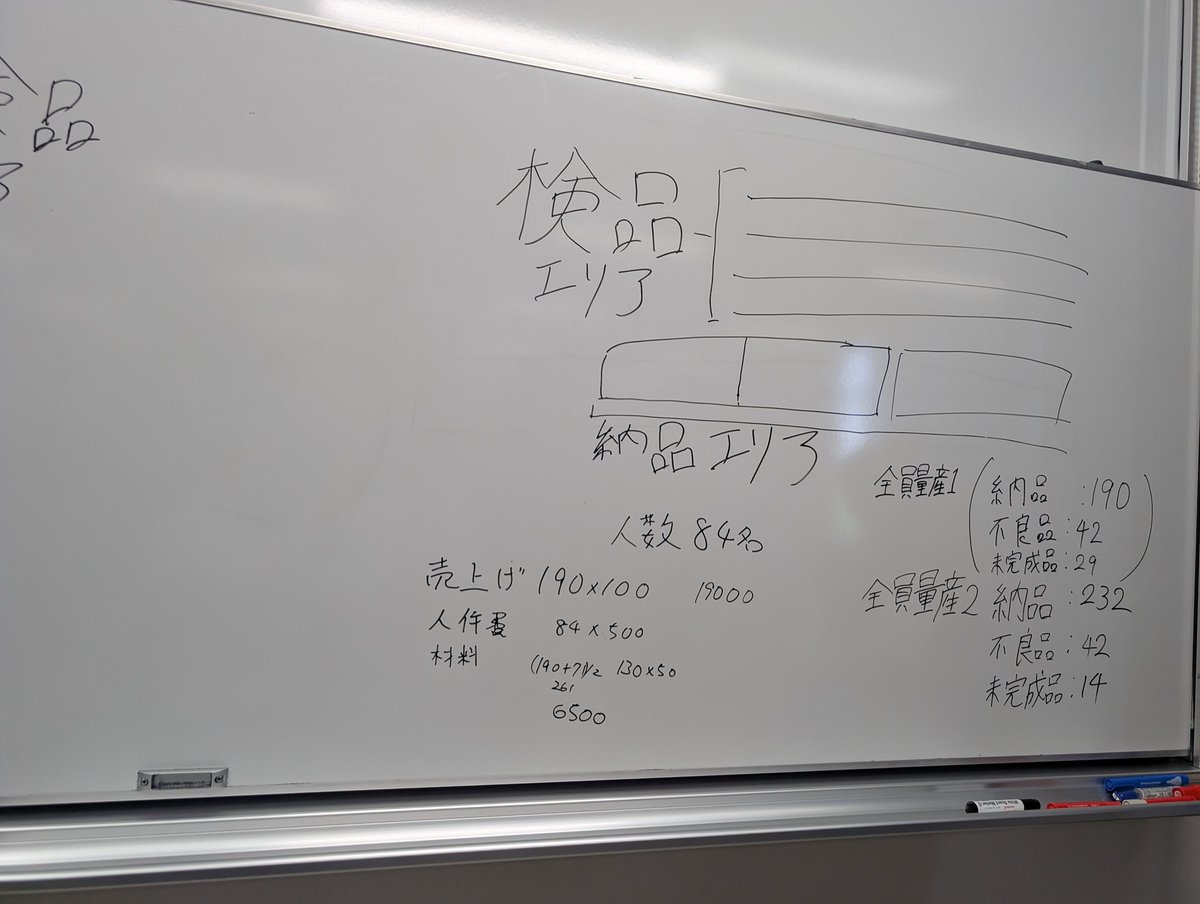 品
検品
エリア
納品エリア
人数 84名
売上げ 190×100 19000
人件費 84×500
材料 (190+71)/2 130×50
261
6500
全員量産1 納品:190
不良品:42
未完成品:29
全員量産2 納品:232
不良品:42
未完成品:14